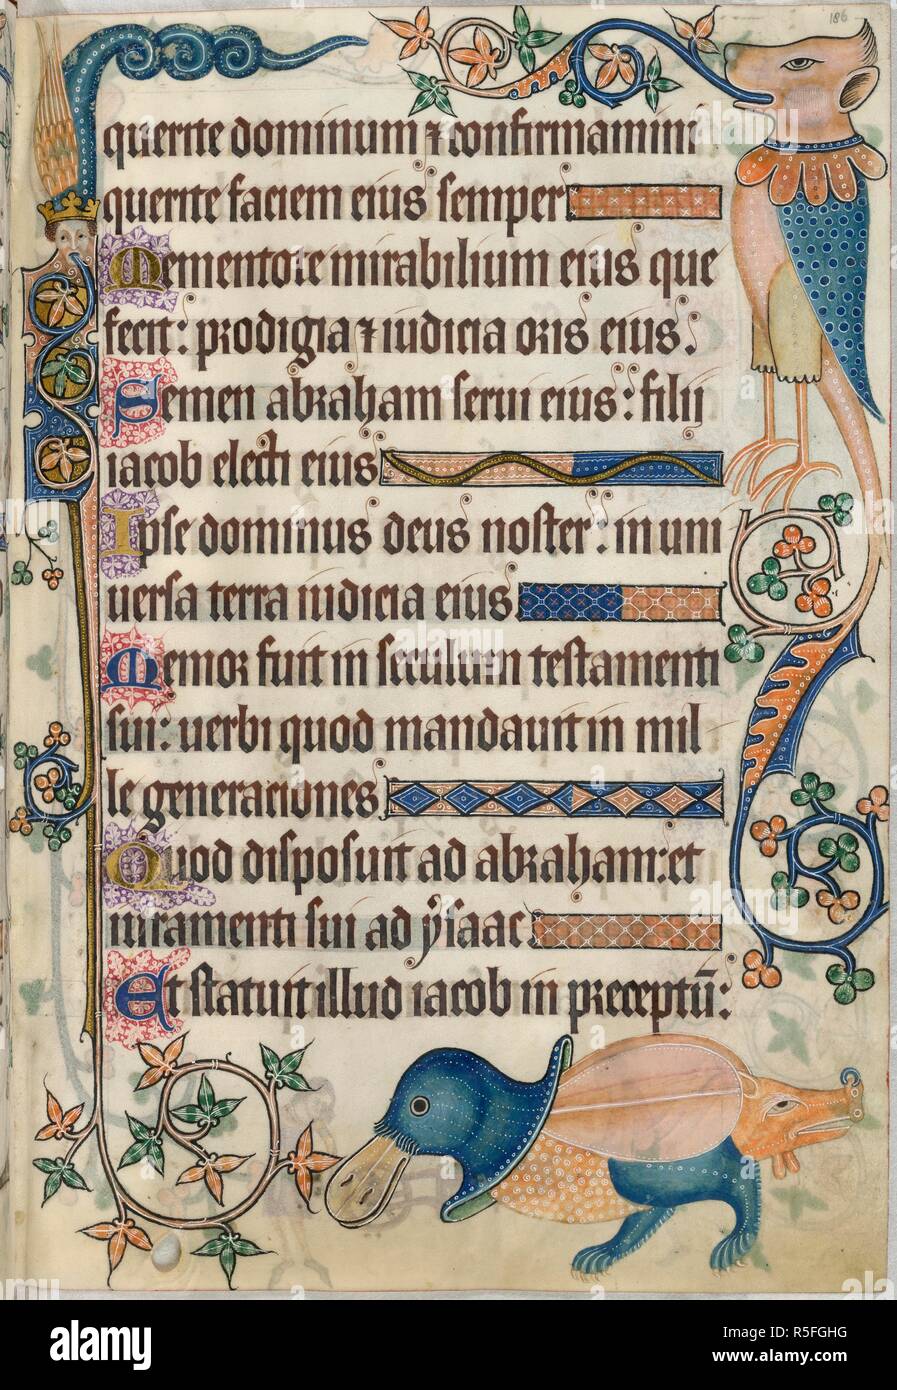 186
querite dominum ⁊ confirmamini
querite faciem eius semper
Mementote mirabilium eius que
fecit: prodigia ⁊ iudicia oris eius.
Semen abraham serui eius: filij
iacob electi eius
Ipse dominus deus noster: in uni
uersa terra iudicia eius
Memor fuit in seculum testamenti
sui: uerbi quod mandauit in mil
le generaciones
Quod disposuit ad abraham: et
iuramenti sui ad ysaac.
Et statuit illud iacob in preceptū:
alamy
Image ID: R5FGHG
www.alamy.com